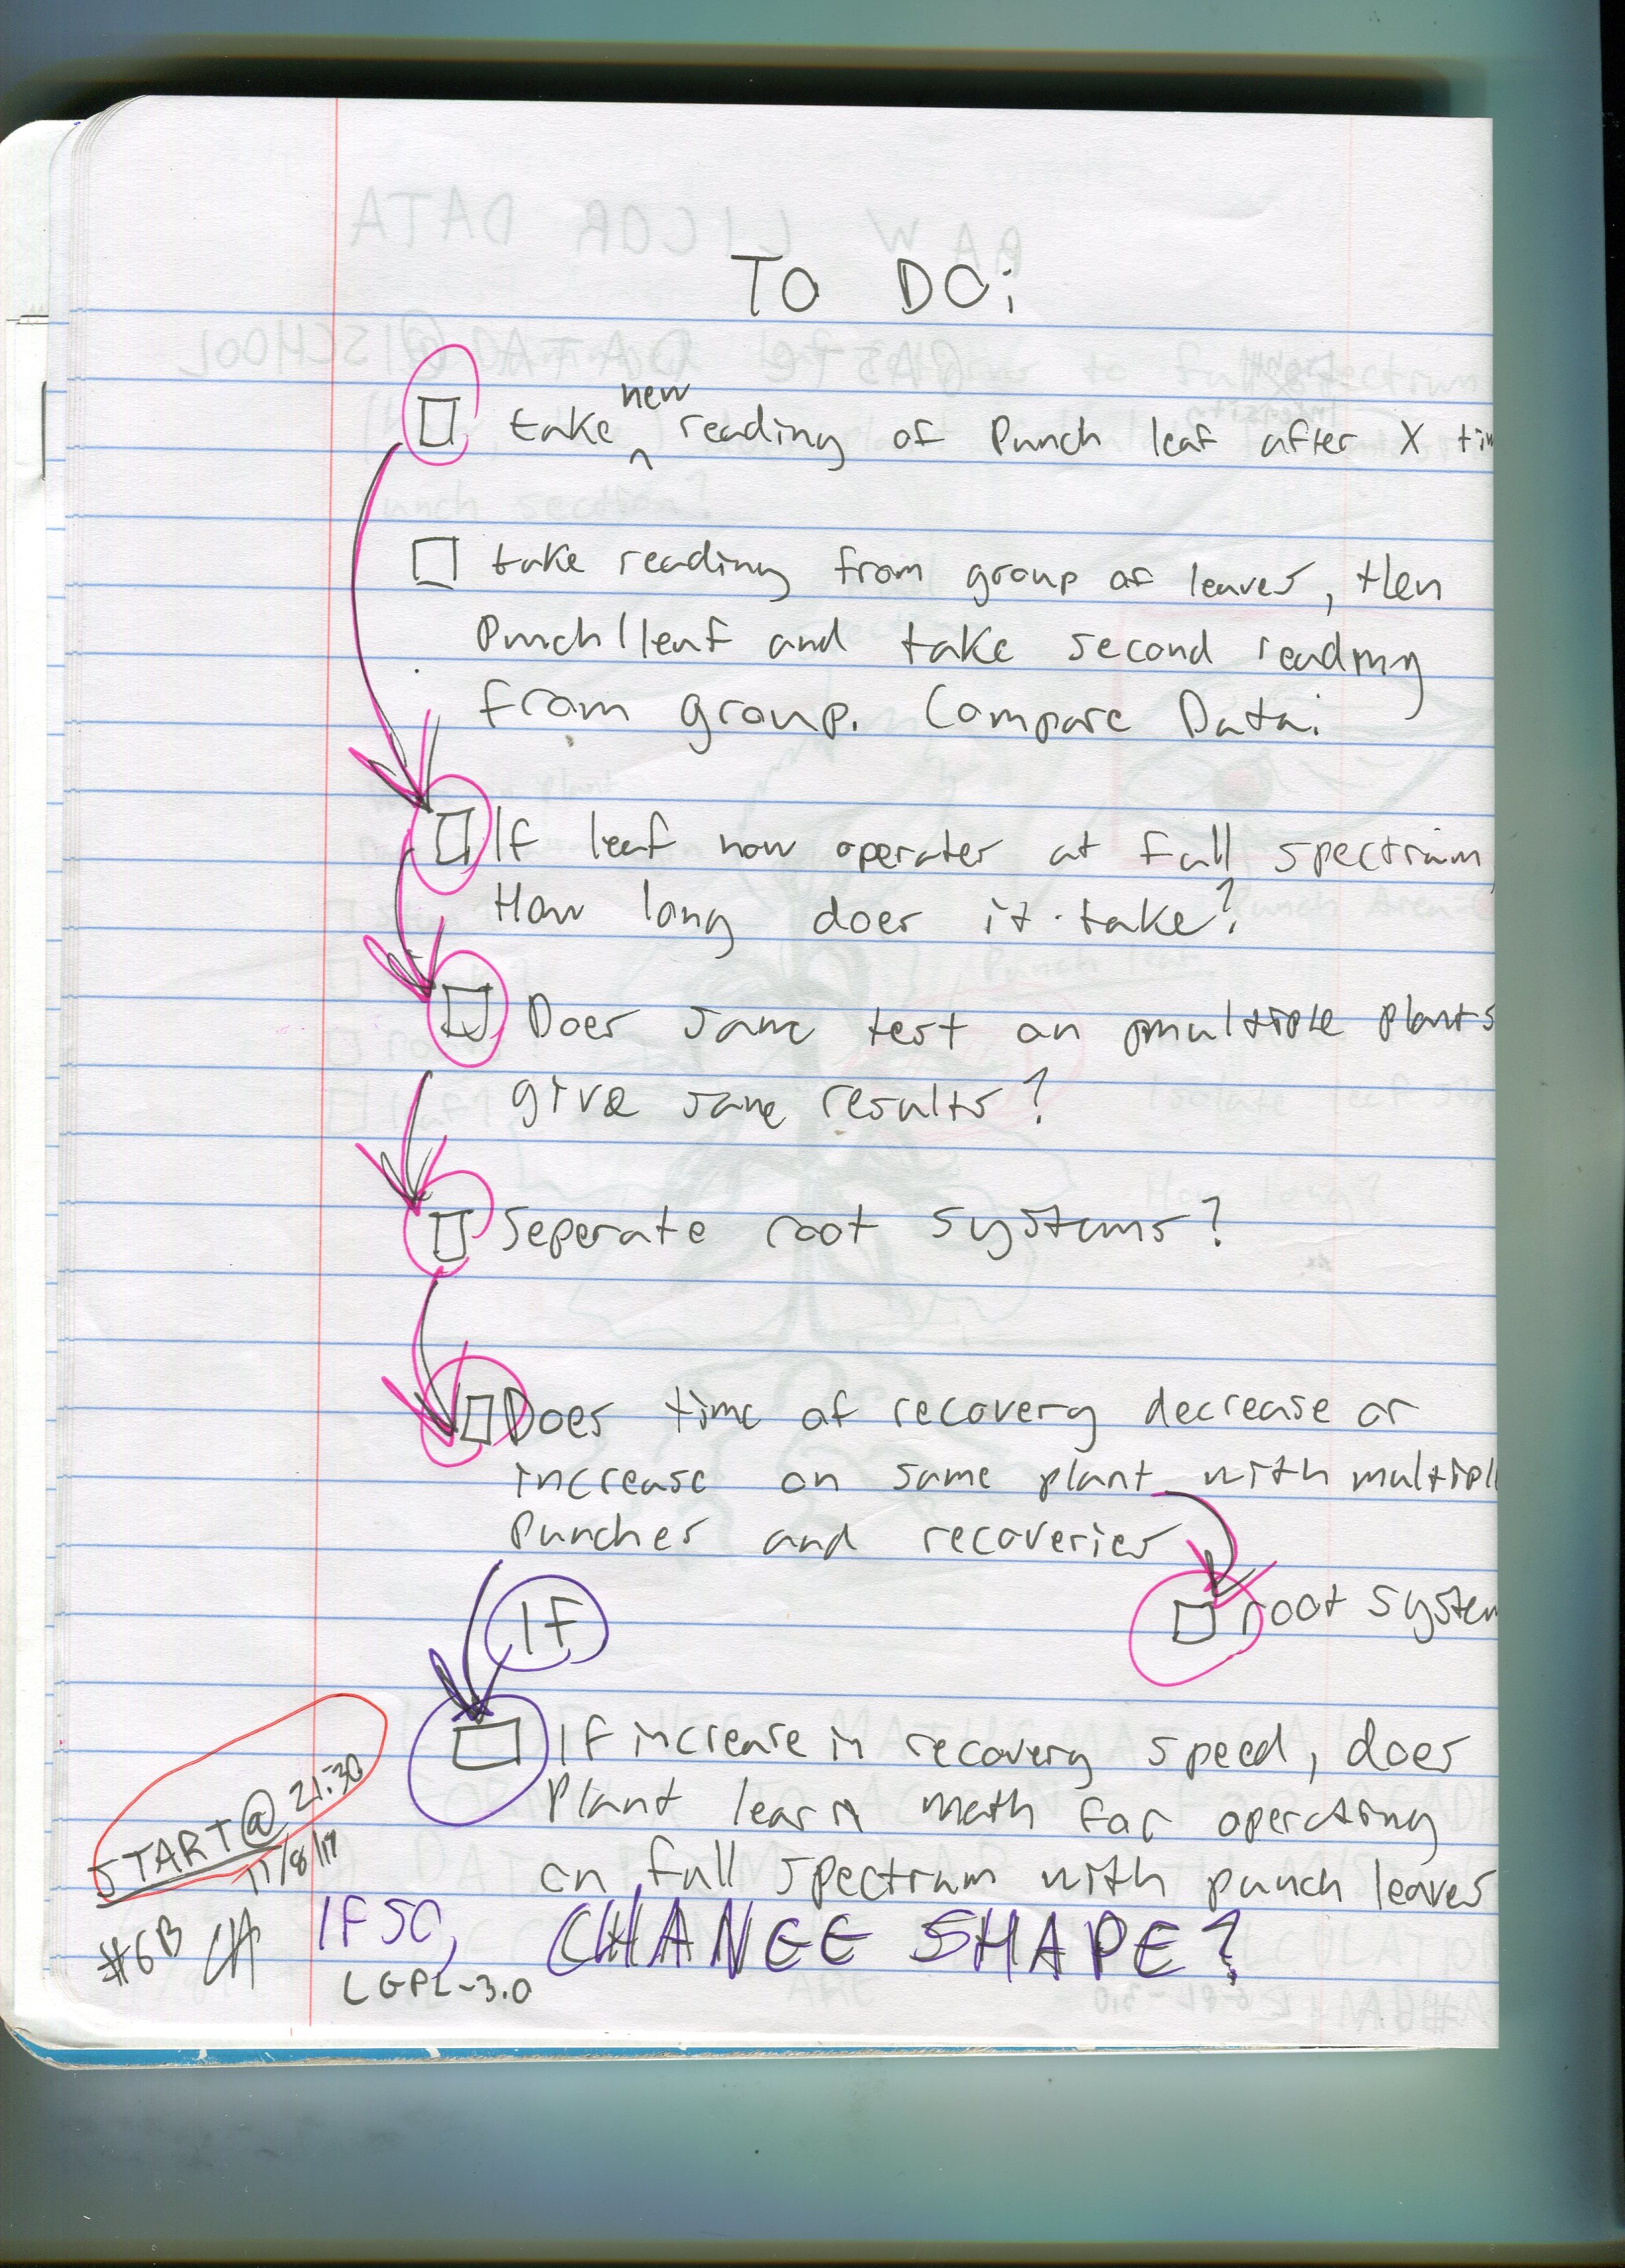 TO DO:
new
take ^ reading of Punch leaf after X
take reading from group of leaves, then
Punch 1 leaf and take second reading
from group. Compare Data.
If leaf now operates at full spectrum,
How long does it take?
Does same test on multiple plants
give same results?
Seperate root systems?
Does time of recovery decrease or
increase on same plant with
Punches and recoveries
IF
root
If increase in recovery speed, does
Plant learn math for operating
on full spectrum with punch leaves
START@ 21:30
11/8/17
IF SO, CHANGE SHAPE?
#6B
LGPL-3.0